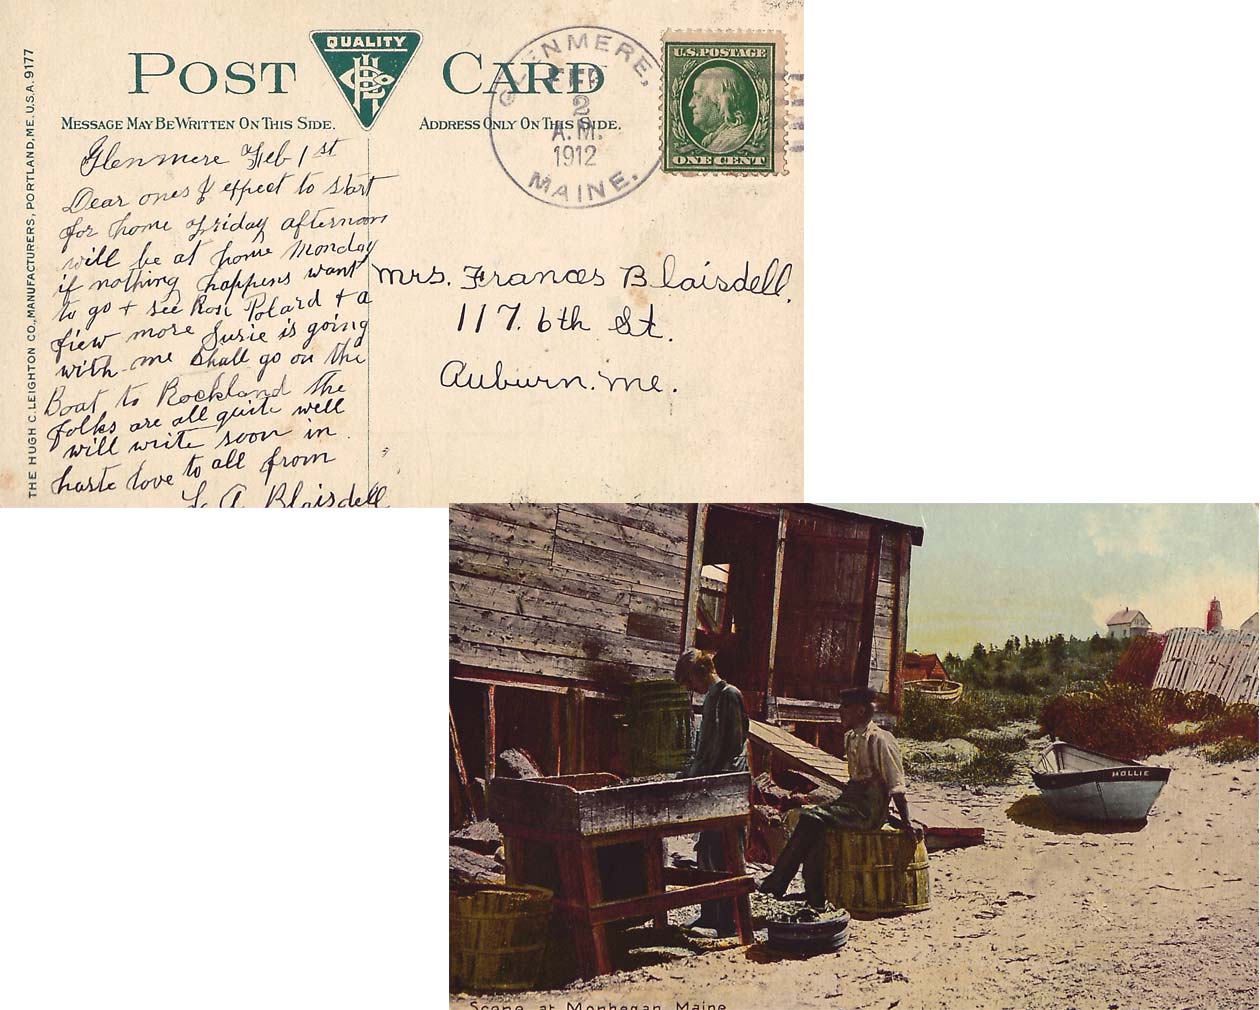 THE HUGH C. LEIGHTON CO., MANUFACTURERS, PORTLAND, ME. U.S.A. 9177
POST CARD
QUALITY
MESSAGE MAY BE WRITTEN ON THIS SIDE.
ADDRESS ONLY ON THIS SIDE.
GLENMERE,
FEB
2
A.M.
1912
MAINE.
U.S. POSTAGE
ONE CENT
Glenmere Feb 1st
Dear ones I expect to start
for home Friday afternoon
will be at home Monday
if nothing happens want
to go + see Rose Polard + a
fiew more Susie is going
with me Shall go on the
Boat to Rockland the
folks are all quite well
will write soon in
haste love to all from
L A Blaisdell
Mrs. Frances Blaisdell,
117. 6th St.
Auburn. Me.
HOLLIE
Scene at Monhegan, Maine